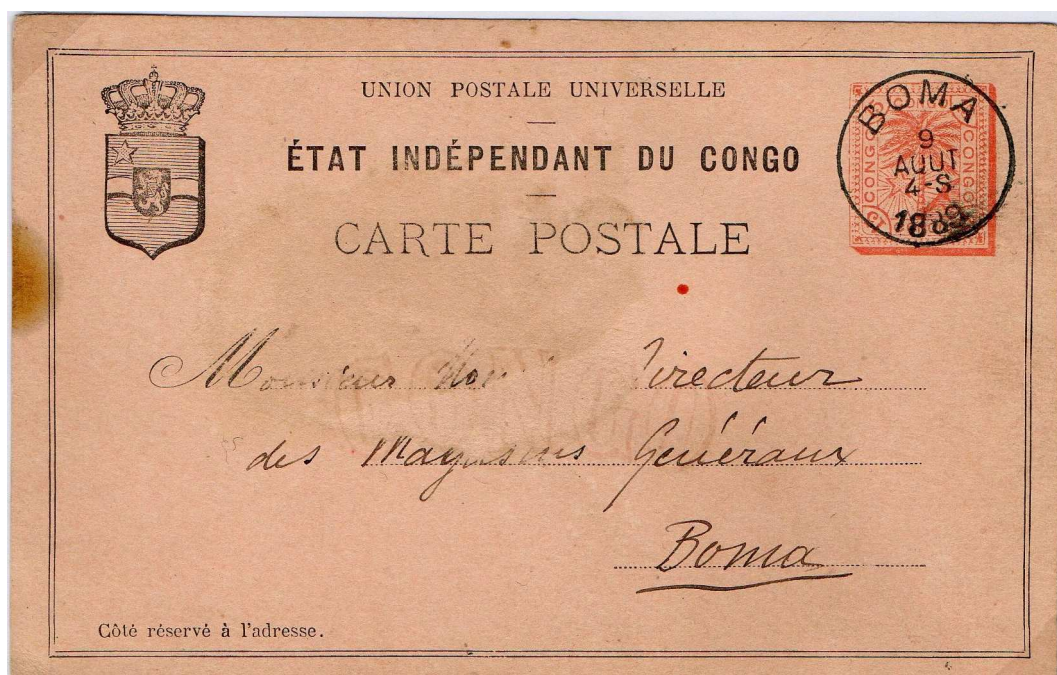 UNION POSTALE UNIVERSELLE
ÉTAT INDÉPENDANT DU CONGO
CARTE POSTALE
BOMA
9
AOUT
4-S
1889
CONGO
CONGO
Monsieur Directeur
des Magasins Généraux
Boma
Côté réservé à l'adresse.